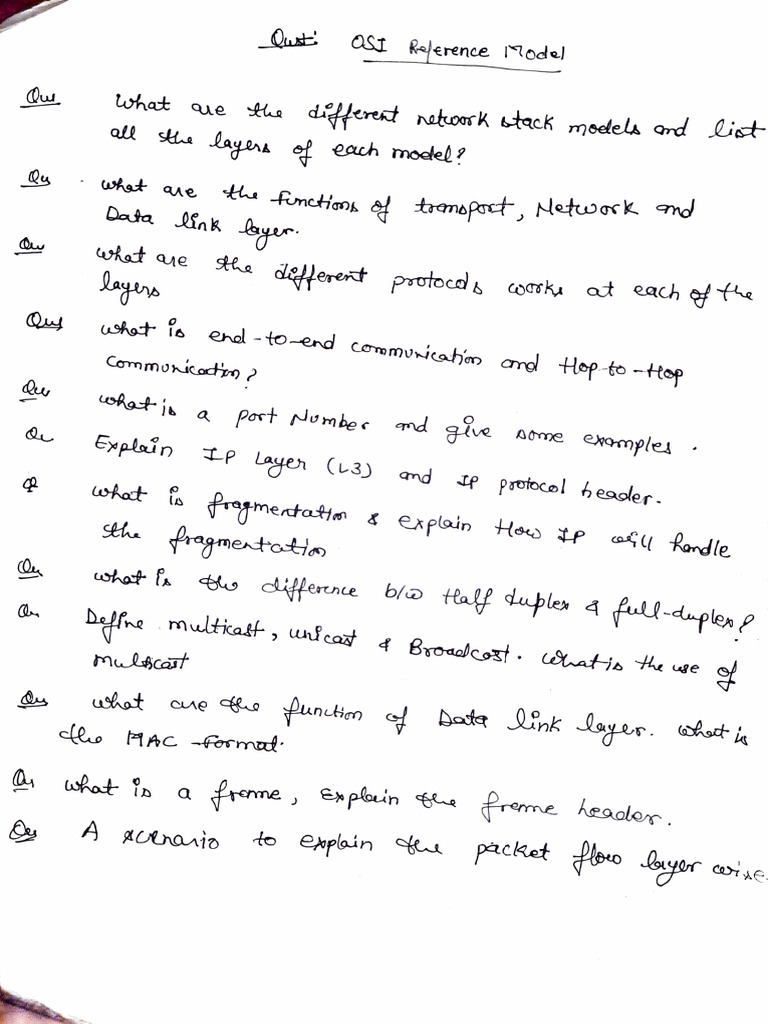 Qust: OSI Reference Model
Qus What are the different network stack models and list
all the layers of each model?
Qu what are the functions of transport, Network and
Data link layer.
Qu what are the different protocols works at each of the
layers
Qus what is end-to-end communication and Hop-to-Hop
communication?
Qu what is a port Number and give some examples.
Qu Explain IP Layer (L3) and IP protocol header.
Q what is fragmentation & explain How IP will handle
the fragmentation
Qu what is the difference b/w Half duplex & full-duplex?
Qu Define multicast, unicast & Broadcast. What is the use of
multicast
Qus what are the function of Data link layer. What is
the MAC -Format.
Qu what is a freme, explain the freme header.
Qu A scenario to explain the packet flow layer wise.